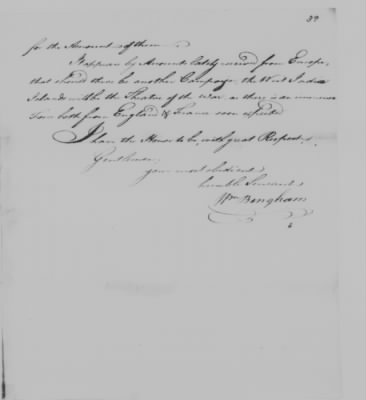 39
for the Amount of them.
It appears by Accounts lately received from Europe,
that should there be another Campaign the West India
Islands will be the Theatre of the War as there is an immense
Force both from England & France soon expected
I have the Honor to be, with great Respect,
Gentlemen,
your most obedient
humble Servant
Wm Bingham